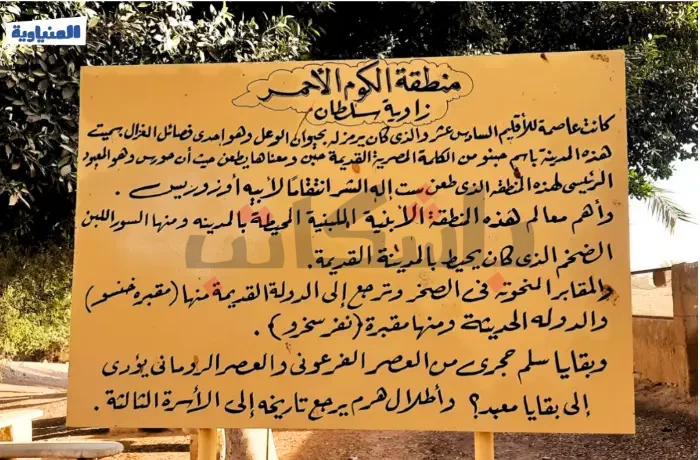 المنياوية
منطقة الكوم الأحمر
زاوية سلطان
كانت عاصمة للأقليم السادس عشر والذى كان يرمز له بحيوان الوعل وهو احدى فصائل الغزال سميت
هذه المدينة باسم حبنو من الكلمة المصرية القديمة حبن ومعناها يطعن حيث أن حورس وهو المعبود
الرئيسى لهذه المنطقه الذى طعن ست إله الشر انتقامًا لأبيه أوزوريس .
وأهم معالم هذه المنطقة الأبنية اللبنية المحيطة بالمدينه ومنها السور اللبن
الضخم الذى كان يحيط بالمدينة القديمة.
والمقابر المنحوته فى الصخر وترجع إلى الدولة القديمة منها (مقبرة خنسو)
والدوله الحديثة ومنها مقبرة (نفر سخرو) .
وبقايا سلم حجرى من العصر الفرعونى والعصر الرومانى يؤدى
إلى بقايا معبد؟ وأطلال هرم يرجع تاريخه إلى الأسرة الثالثة .
باشكاتب